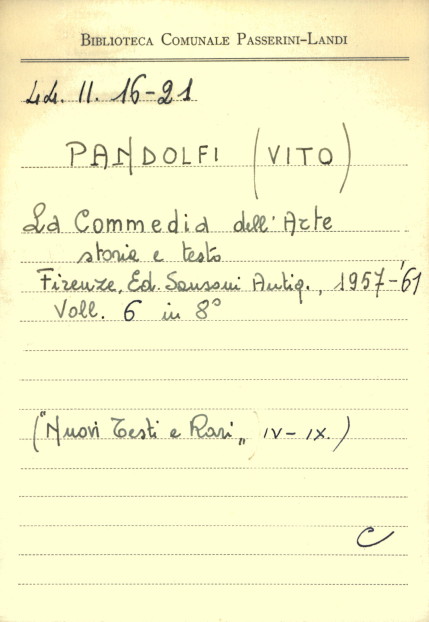 BIBLIOTECA COMUNALE PASSERINI-LANDI
LL. II. 16-21
PANDOLFI (VITO)
La Commedia dell'Arte
storia e testo
Firenze, Ed. Sansoni Antiq., 1957-'61
Voll. 6 in 8°
("Nuovi Testi e Rari„ IV-IX.)
C